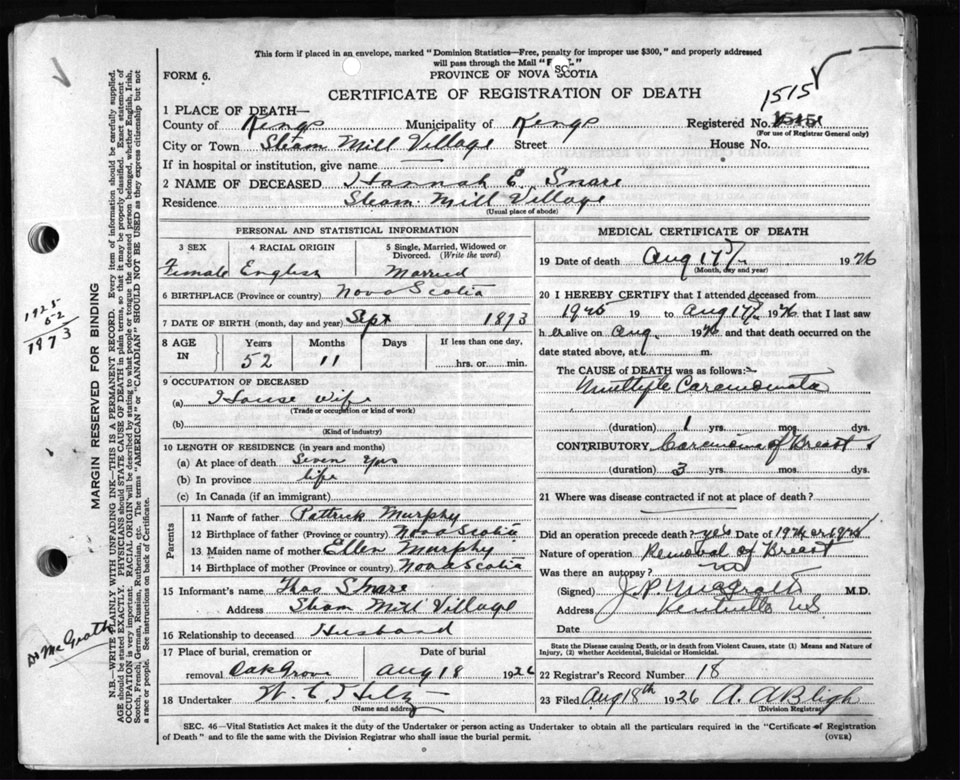 This form if placed in an envelope, marked "Dominion Statistics—Free, penalty for improper use $300," and properly addressed
will pass through the Mail
FORM 6.
PROVINCE OF NOVA SCOTIA
CERTIFICATE OF REGISTRATION OF DEATH
1515
1 PLACE OF DEATH—
County of Kings Municipality of Kings Registered No.
(For use of Registrar General only)
City or Town Steam Mill Village Street House No.
If in hospital or institution, give name —
2 NAME OF DECEASED Hannah E. Snare
Residence Steam Mill Village
(Usual place of abode)
PERSONAL AND STATISTICAL INFORMATION
3 SEX 4 RACIAL ORIGIN 5 Single, Married, Widowed or Divorced. (Write the word)
Female English Married
6 BIRTHPLACE (Province or country) Nova Scotia
7 DATE OF BIRTH (month, day and year) Sept 1873
8 AGE IN Years Months Days If less than one day,
52 11 hrs. or min.
9 OCCUPATION OF DECEASED
(a) House wife
(Trade or occupation or kind of work)
(b)
(Kind of industry)
10 LENGTH OF RESIDENCE (in years and months)
(a) At place of death Seven yrs
(b) In province life
(c) In Canada (if an immigrant)
Parents
11 Name of father Pattrick Murphy
12 Birthplace of father (Province or country) Nova Scotia
13 Maiden name of mother Ellen Murphy
14 Birthplace of mother (Province or country) Nova Scotia
15 Informant's name Thos Snare
Address Steam Mill Village
16 Relationship to deceased Husband
17 Place of burial, cremation or removal Date of burial
Oak Grove Aug 18 1926
18 Undertaker W.
(Name and address)
MEDICAL CERTIFICATE OF DEATH
19 Date of death Aug 17 1926
(Month, day and year)
20 I HEREBY CERTIFY that I attended deceased from
1925 19 to Aug 17 1926 that I last saw
h er alive on Aug. 1926 and that death occurred on the
date stated above, at m.
The CAUSE of DEATH was as follows:
Multiple Carcinomata
(duration) 1 yrs. mos. dys.
CONTRIBUTORY Carcinoma of Breast
(duration) 3 yrs. mos. dys.
21 Where was disease contracted if not at place of death?
Did an operation precede death? yes Date of 1924 or 1925
Nature of operation Removal of Breast
Was there an autopsy? no
(Signed) J. P. McGrath M.D.
Address Kentville NS
Date
State the Disease causing Death, or in death from Violent Causes, state (1) Means and Nature of Injury, (2) whether Accidental, Suicidal or Homicidal.
22 Registrar's Record Number 18
23 Filed Aug 18th 1926 A. A. Bligh
(Division Registrar)
SEC. 46—Vital Statistics Act makes it the duty of the Undertaker or person acting as Undertaker to obtain all the particulars required in the "Certificate of Registration
of Death" and to file the same with the Division Registrar who shall issue the burial permit. (OVER)
MARGIN RESERVED FOR BINDING
N.B.—WRITE PLAINLY WITH UNFADING INK—THIS IS A PERMANENT RECORD. Every item of information should be carefully supplied.
AGE should be stated EXACTLY. PHYSICIANS should STATE CAUSE OF DEATH in plain terms, so that it may be properly classified. Exact statement of
OCCUPATION is very important. RACIAL ORIGIN will be described by stating to what people or tongue the deceased person belonged, whether English, Irish,
Scotch, French, German, Russian, Ruthenian, etc. The terms "AMERICAN" or "CANADIAN" SHOULD NOT BE USED as they express citizenship but not
a race or people. See instructions on back of Certificate.
1925
52
1873
Dr McGrath